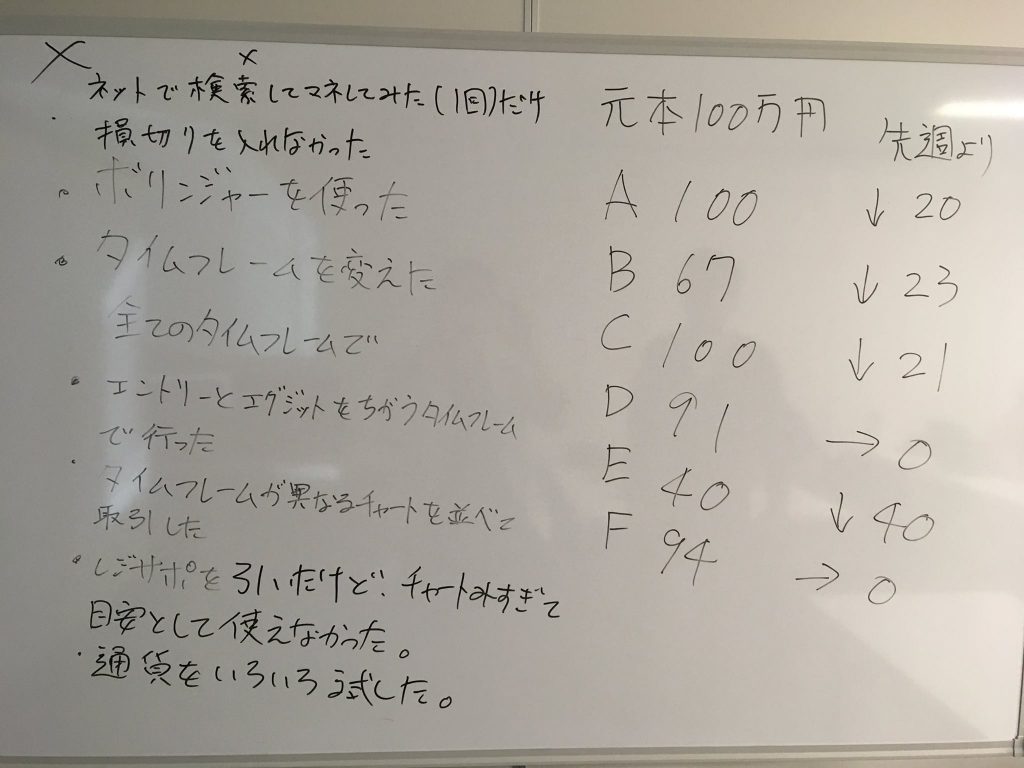 ×
×
ネットで検索してマネしてみた(1回)だけ
・損切りを入れなかった
・ボリンジャーを使った
・タイムフレームを変えた
全てのタイムフレームで
・エントリーとエグジットをちがうタイムフレーム
で行った
・タイムフレームが異なるチャートを並べて
取引した
・レジサポを引いたけど、チャートみすぎて
目安として使えなかった。
・通貨をいろいろ試した。
元本100万円
先週より
A 100 ↓ 20
B 67 ↓ 23
C 100 ↓ 21
D 91 → 0
E 40 ↓ 40
F 94 → 0